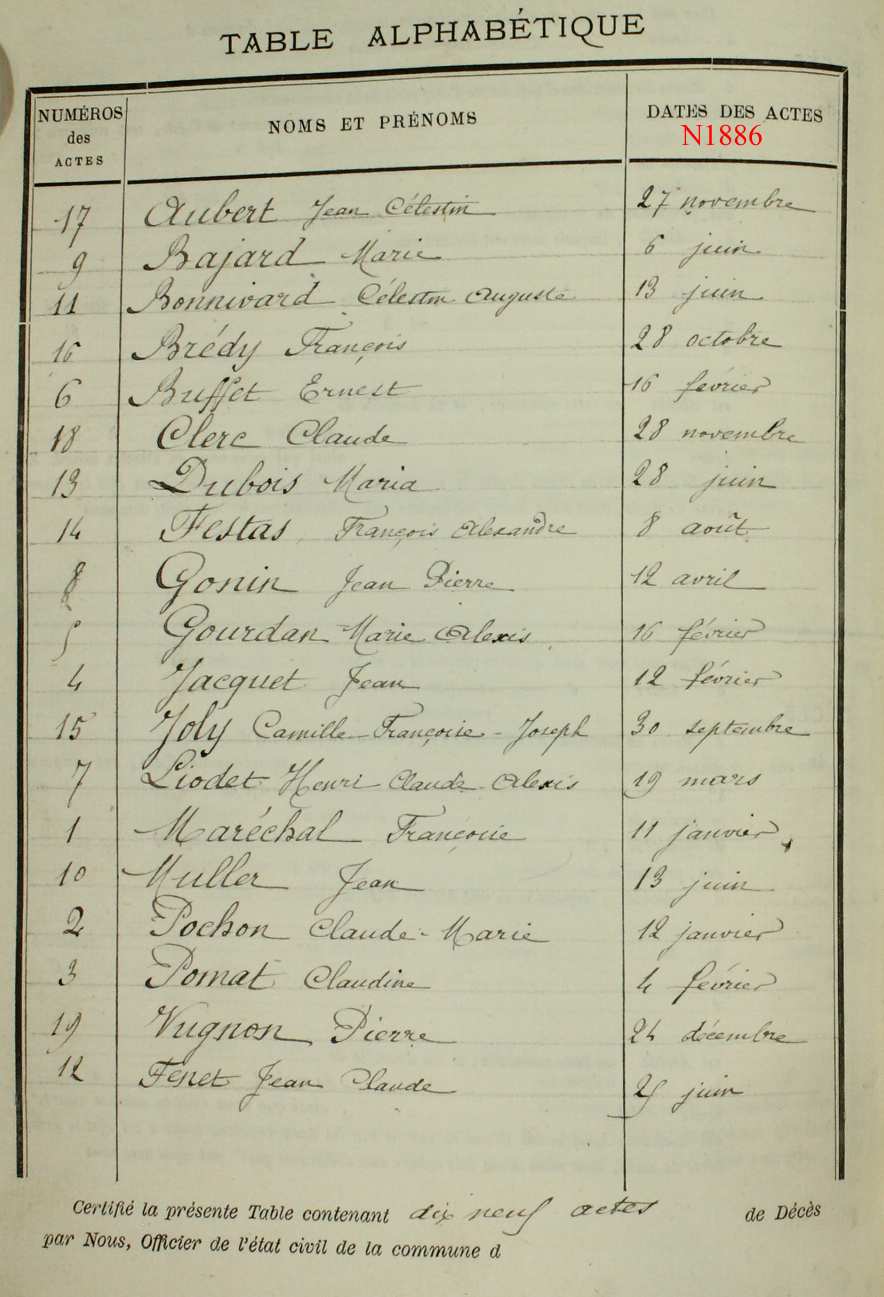 TABLE ALPHABÉTIQUE
NUMÉROS des ACTES NOMS ET PRÉNOMS DATES DES ACTES
N1886
17 Aubert Jean Célestin 27 novembre
9 Bajard Marie 6 juin
11 Bonnivard Célestin Auguste 13 juin
16 Brédy François 28 octobre
6 Buffet Ernest 16 février
18 Clerc Claude 28 novembre
13 Dubois Maria 28 juin
14 Festas François Alexandre 8 août
8 Gonin Jean Pierre 12 avril
5 Gourdan Marie Alexis 16 février
4 Jacquet Jean 12 février
15 Joly Camille-Françoise-Joseph 30 septembre
7 Liodet Henri Claude Alexis 19 mars
1 Maréchal Françoise 11 janvier
10 Muller Jean 13 juin
2 Pochon Claude-Marie 12 janvier
3 Pomat Claudine 4 février
19 Vugnon Pierre 24 décembre
12 Fenet Jean Claude 25 juin
Certifié la présente Table contenant dix neuf actes de Décès
par Nous, Officier de l'état civil de la commune d